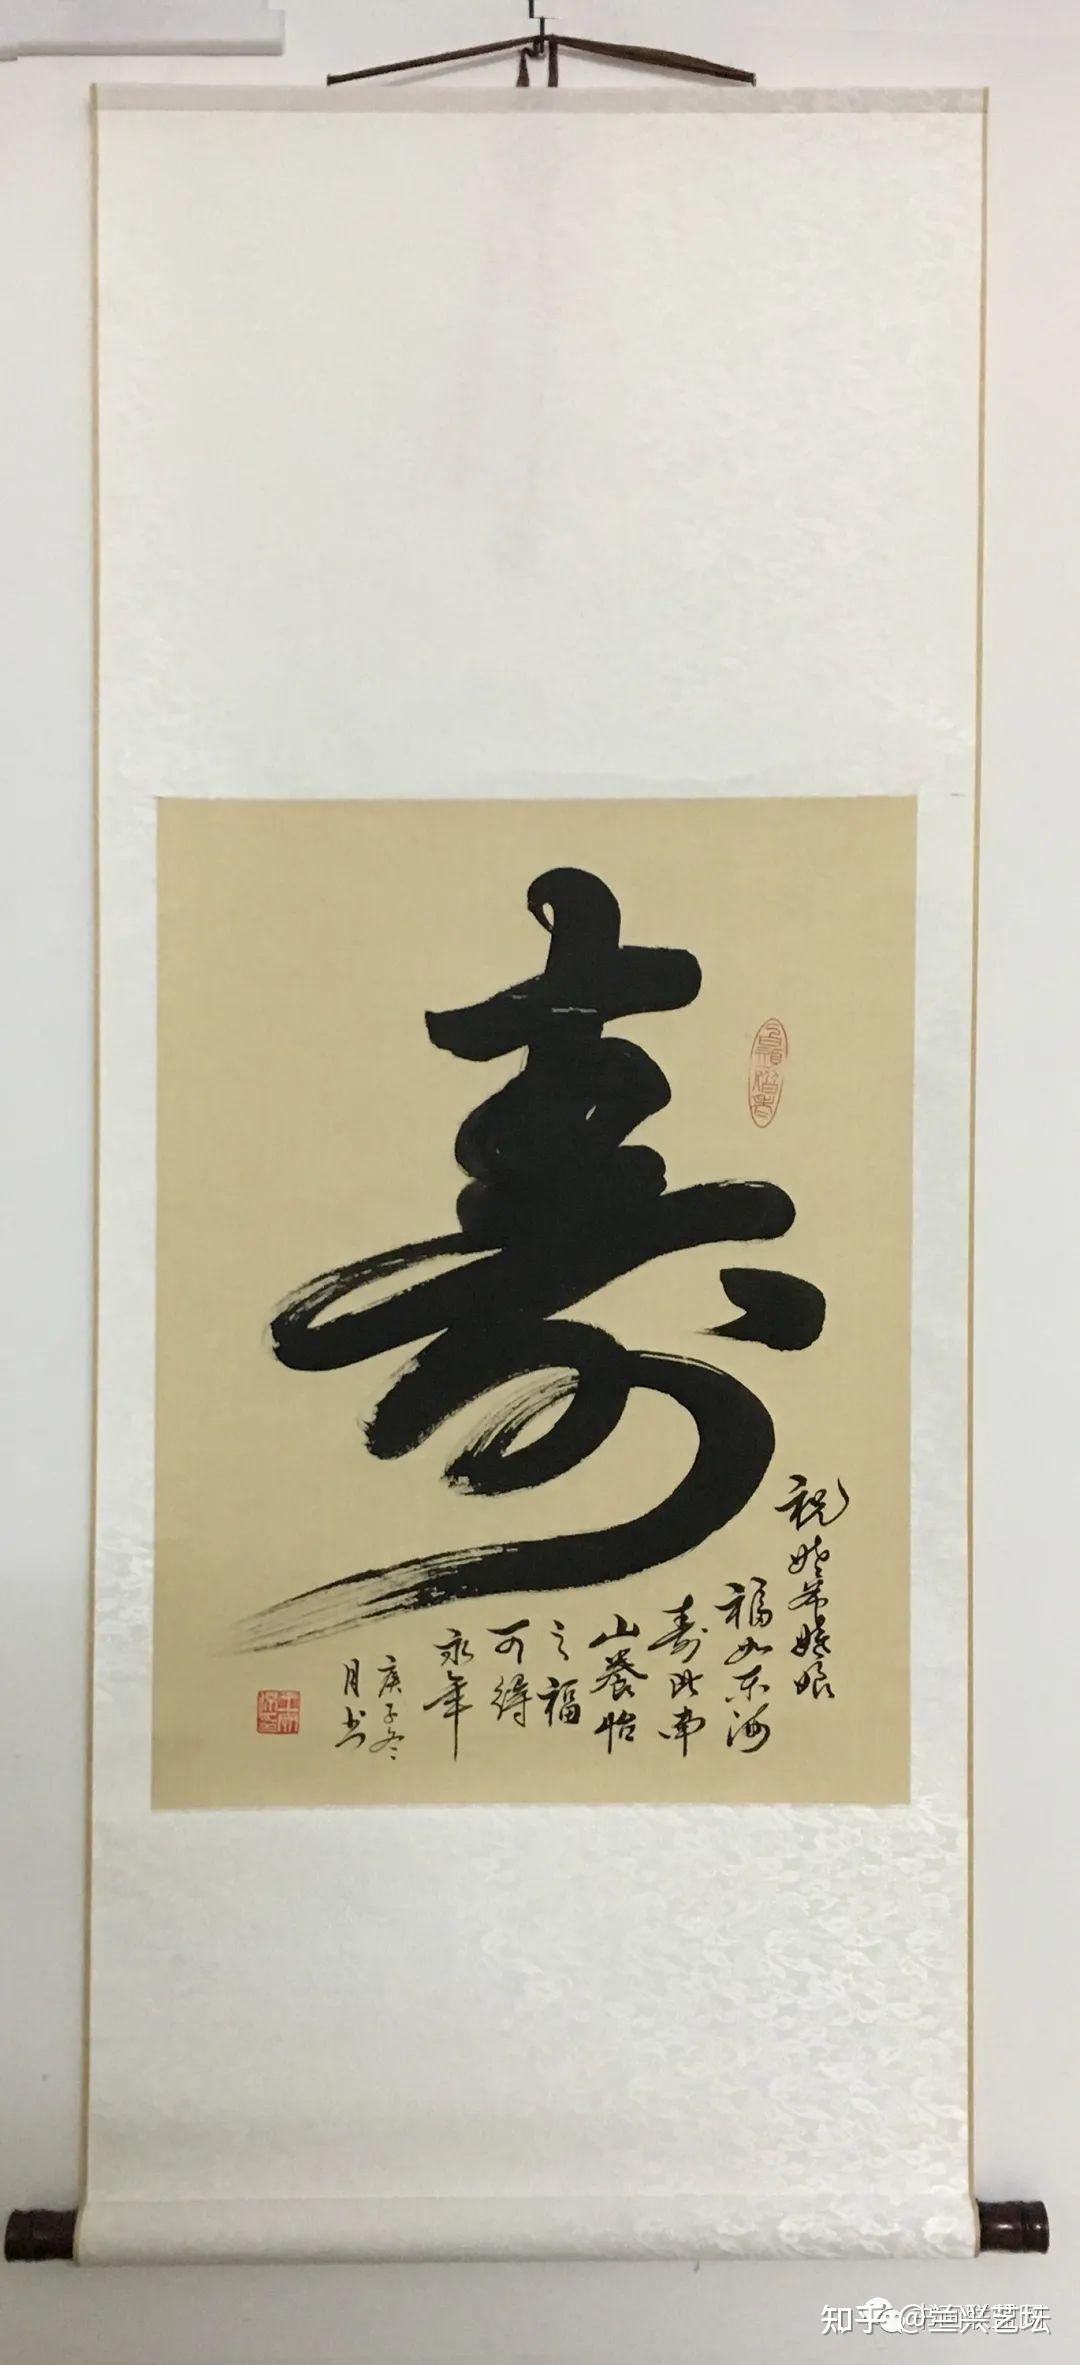 寿
祝姥爷姥娘
福如东海
寿比南
山養怡
之福
可得
永年
庚子冬
月书
知乎